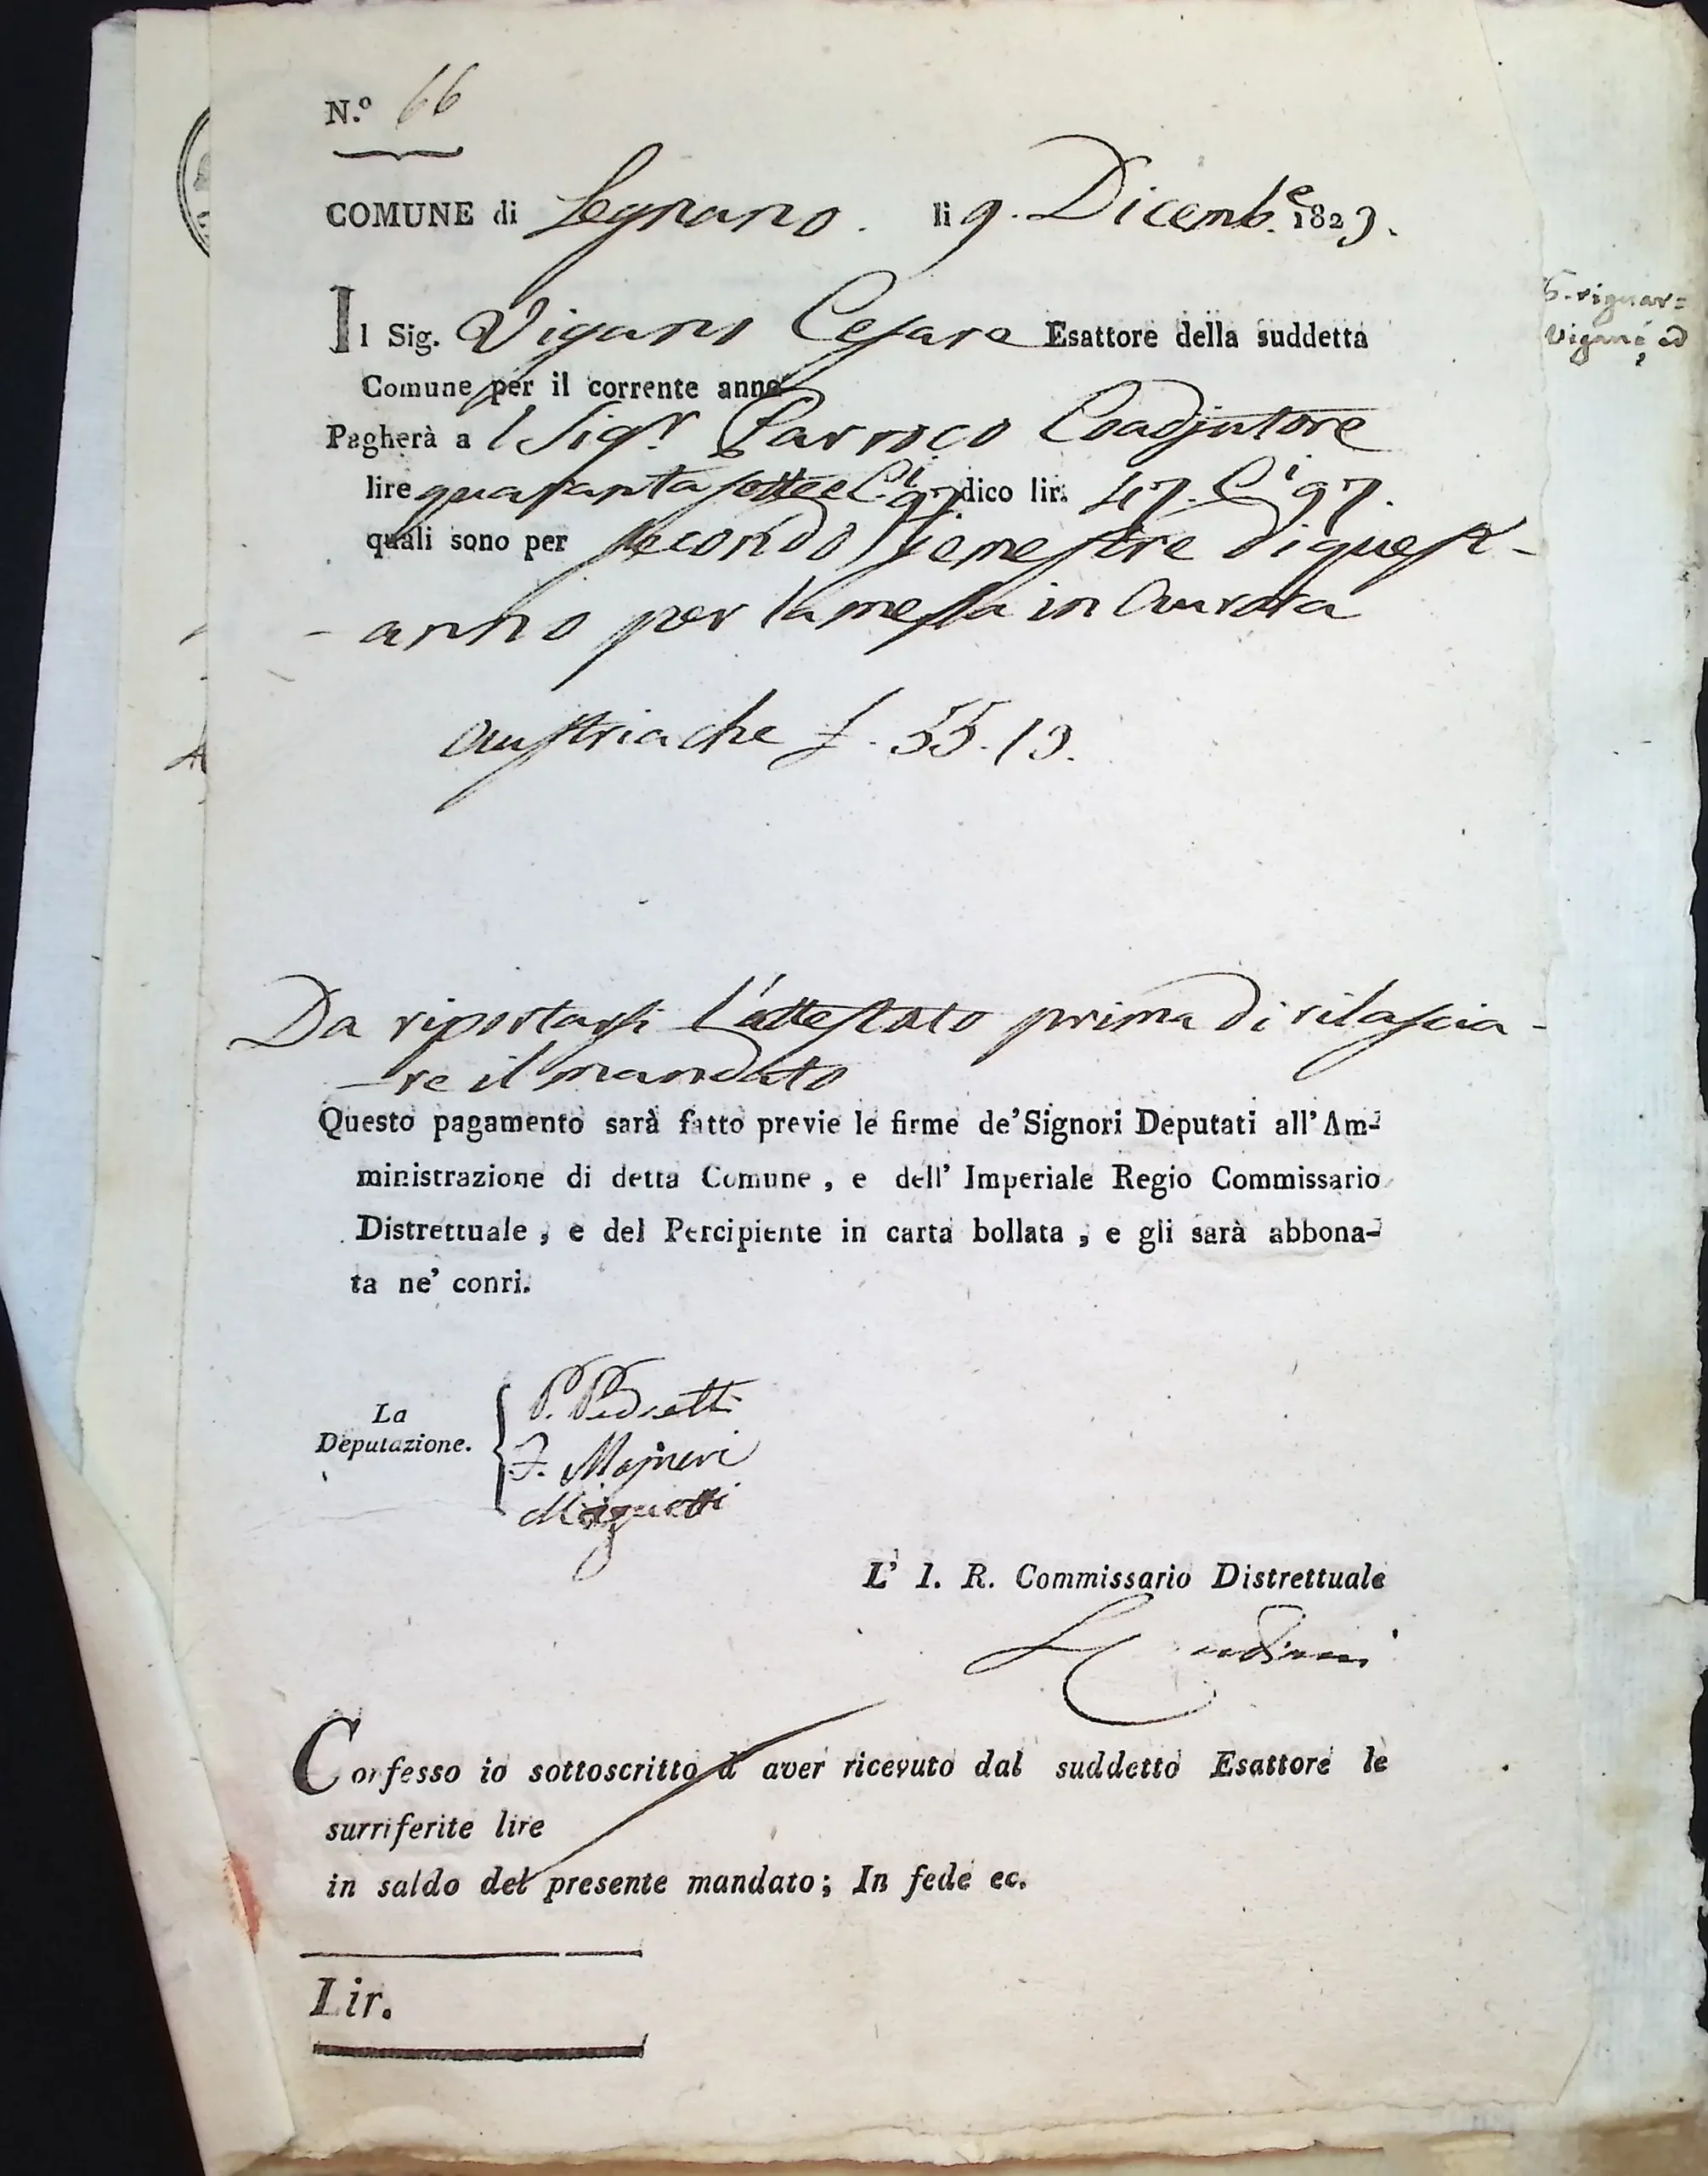 N.º 66
COMUNE di Legnano. li 9. Dicemb.e 1823.
Il Sig. Vigano Cesare Esattore della suddetta
Comune per il corrente anno
Pagherà a l Sig.r Parroco Coadjutore
lire quaranta sette e C.i 97 dico lir: 47. C.i 97.
quali sono per secondo semestre di quest-
- anno per la messa in Aurora
Austriache £. 55.13.
Da riportarsi l'attestato prima di rilascia-
-re il mandato
Questo pagamento sarà fatto previe le firme de' Signori Deputati all' Am-
ministrazione di detta Comune, e dell' Imperiale Regio Commissario
Distrettuale, e del Percipiente in carta bollata, e gli sarà abbona-
ta ne' conri.
La
Deputazione.
P.
F.
L' I. R. Commissario Distrettuale
Confesso io sottoscritto d aver ricevuto dal suddetto Esattore le
surriferite lire
in saldo del presente mandato; In fede ec.
Lir.